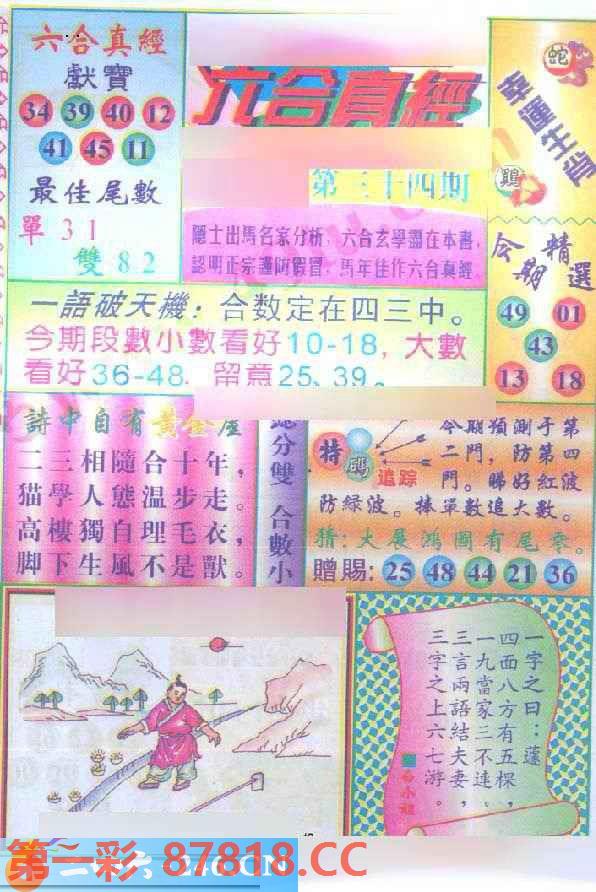 六合真經
獻寶
34 39 40 12
41 45 11
最佳尾數
單31
雙82
六合真經
第三十四期
隱士出馬名家分析，六合玄學盡在本書，
認明正宗謹防假冒，馬年佳作六合真經。
蛇
幸運生肖
鷄
今期精選
49 01
43
13 18
一語破天機：合数定在四三中。
今期段數小數看好10-18，大數
看好36-48，留意25、39。
詩中自有黃金屋
二三相隨合十年，
猫學人態温步走。
高樓獨自理毛衣，
脚下生風不是獸。
分雙 合數小
特碼追踪
今期須測于第
二門，防第四
門。睇好紅波
防緑波。捧單數追大數。
猜：大展鴻圖有尾零。
贈賜：25 48 44 21 36
一字之曰：蓬
四面八方有五棵，
一九當家三不連。
三言兩語結夫妻，
三字之上六七游。
第一彩.87818.CC
246.CN